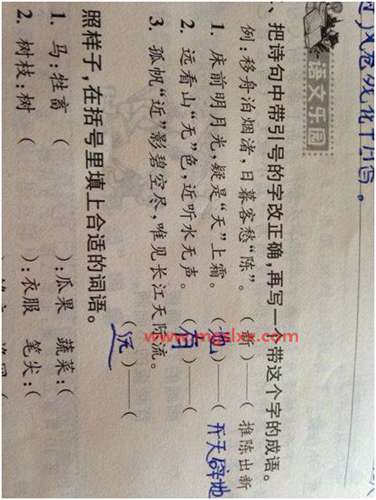 语文乐园
、把诗句中带引号的字改正确,再写一个带这个字的成语。
例:移舟泊烟渚,日暮客愁“陈”。(新) 推陈出新
1. 床前明月光,疑是“天”上霜。(地)—(开天辟地
2. 远看山“无”色,近听水无声。(有)—(
3. 孤帆“近”影碧空尽,唯见长江天际流。(远)—(
照样子,在括号里填上合适的词语。
1. 马:牲畜 ( ):瓜果 蔬菜:(
2. 树枝:树 ( ):衣服 笔尖:(